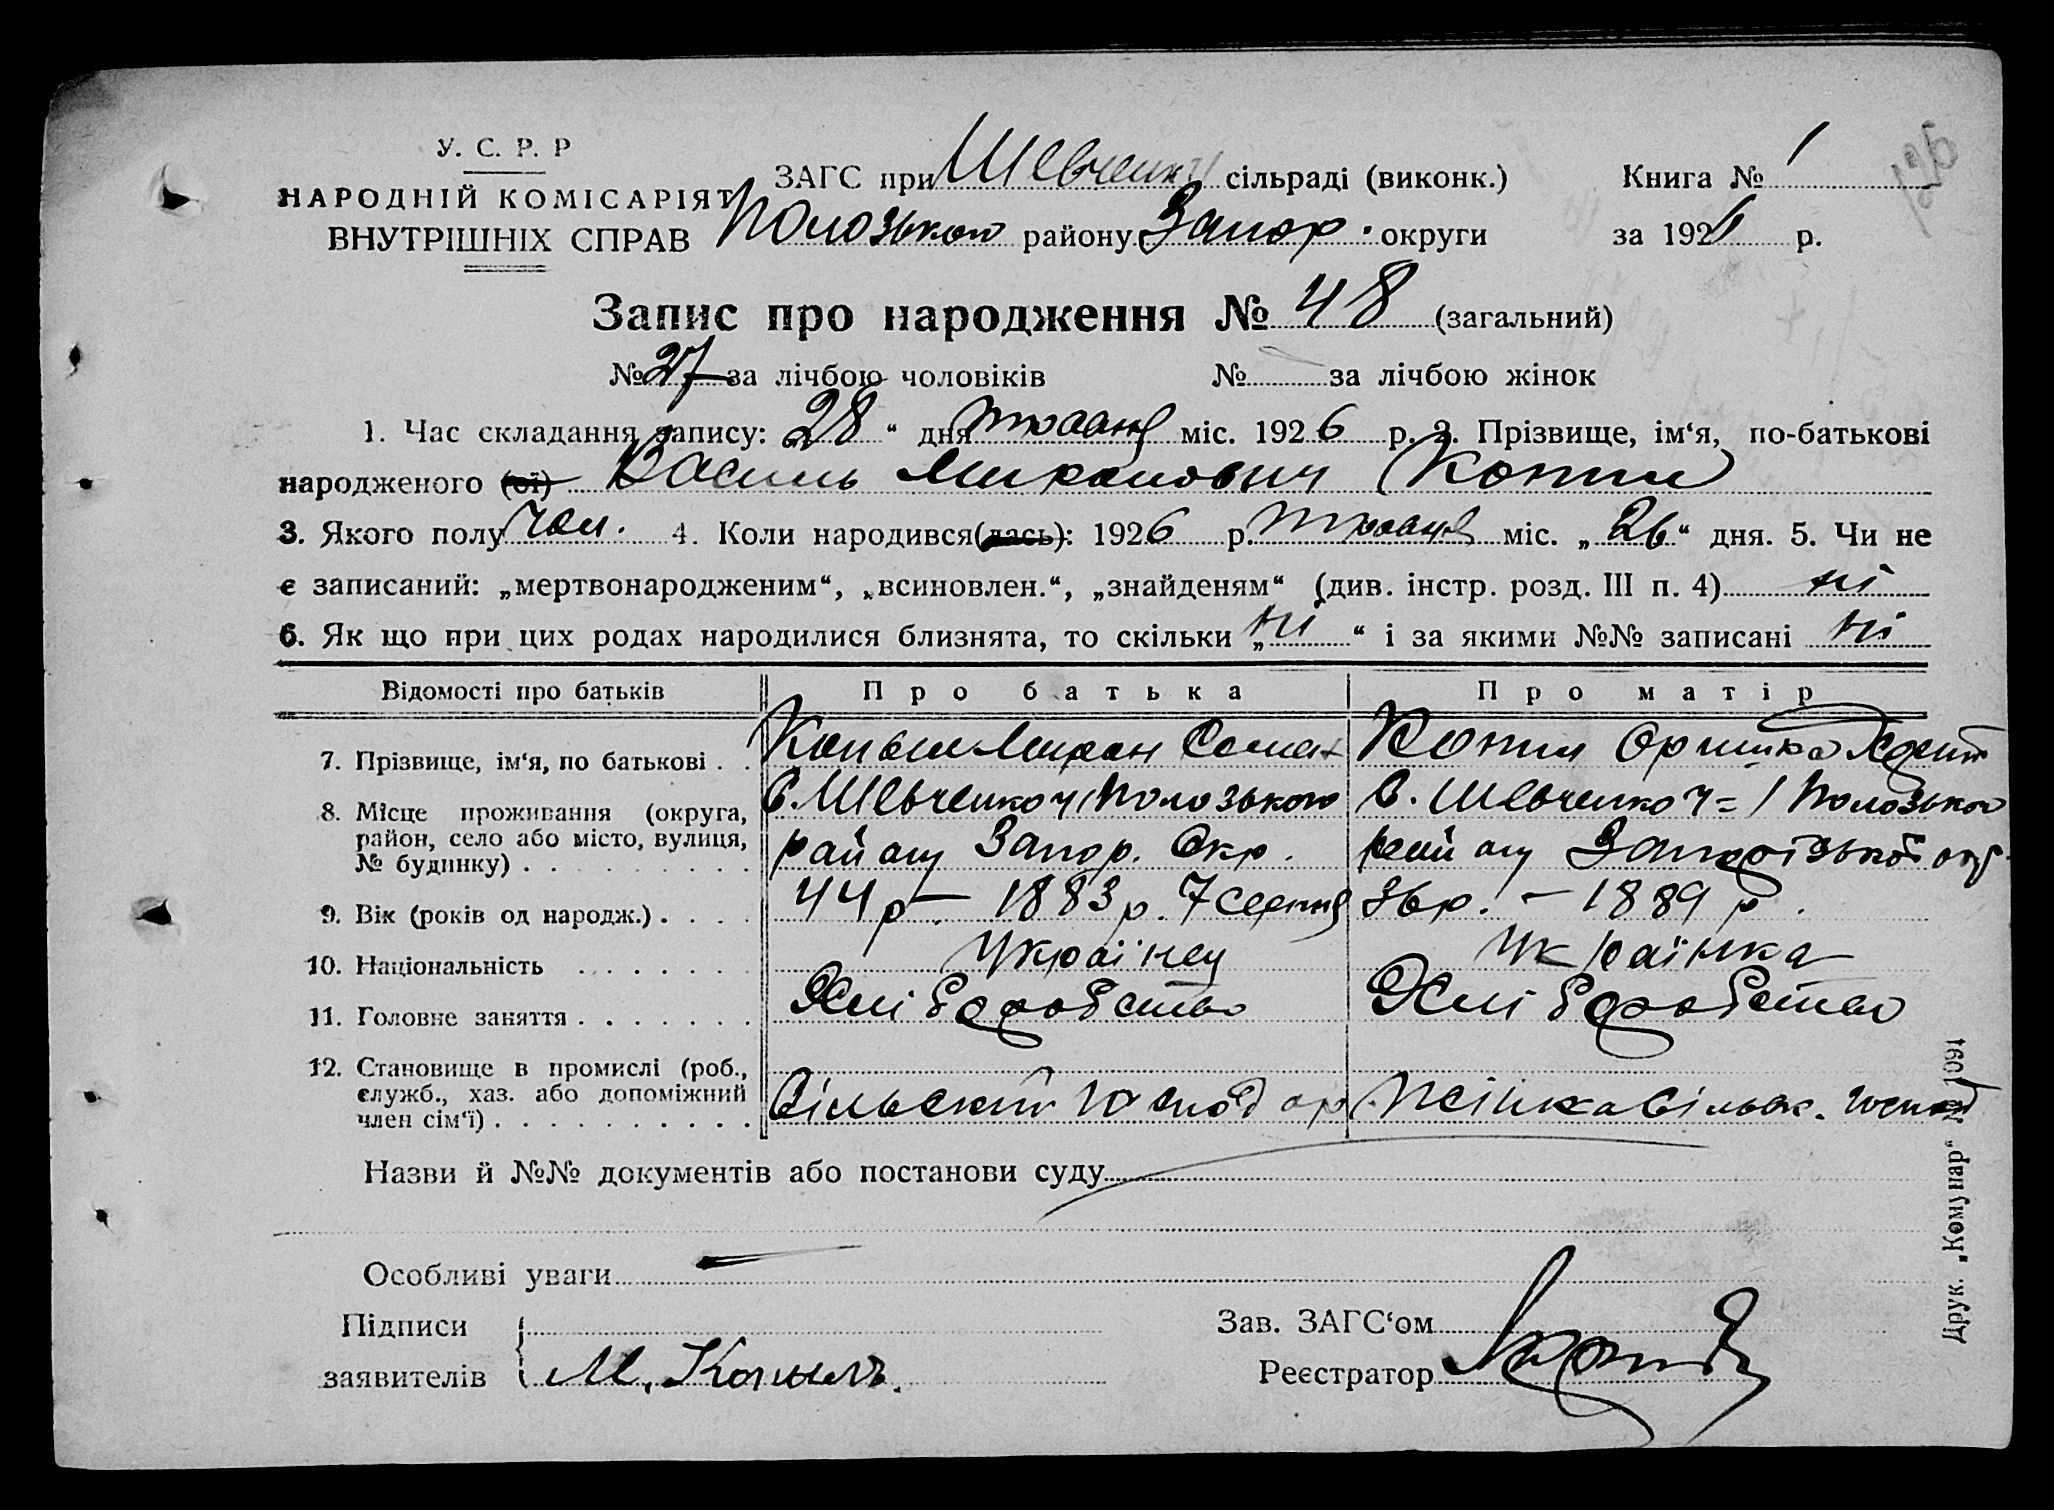 У. С. Р. Р
НАРОДНІЙ КОМІСАРІЯТ
ВНУТРІШНІХ СПРАВ
ЗАГС при Шевченк сільраді (виконк.)
Полозького району Запор. округи
Книга № 1
за 1926 р.
Запис про народження № 48 (загальний)
№ 27 за лічбою чоловіків № за лічбою жінок
1. Час складання запису: 28 “ дня травня міс. 1926 р. 2. Прізвище, ім‘я, по-батькові
народженого (ої) Василь Миронович Копил
3. Якого полу чол. 4. Коли народився(лась): 1926 р. травня міс. „ 26 “ дня. 5. Чи не
є записаний: „мертвонародженим“, „всиновлен.“, „знайденям“ (див. інстр. розд. III п. 4) ні
6. Як що при цих родах народилися близнята, то скільки „ ні “ і за якими №№ записані ні
Відомості про батьків Про батька Про матір
7. Прізвище, ім‘я, по батькові . . Копил Мирон Копил Оришка
8. Місце проживання (округа, район, село або місто, вулиця, № будинку) . . . . . . . . .
С. Шевченко ч 1 Полозького
району Запор. Окр.
С. Шевченко ч = 1 Полозького
району Запорізької окр.
9. Вік (років од народж.) . . . . 44 р – 1883 р. 7 серпня 36 р. – 1889 р.
10. Національність . . . . . . . Українец Українка
11. Головне заняття . . . . . . . Хліборобство Хліборобство
12. Становище в промислі (роб., служб., хаз. або допоміжний член сім‘ї) . . . . . . . . . .
Сільский господар
Жінка сільск. господ
Назви й №№ документів або постанови суду
Особливі уваги
Підписи
заявителів М. Копылъ.
Зав. ЗАГС‘ом
Реєстратор
Друк. „Комунар“ № 1091